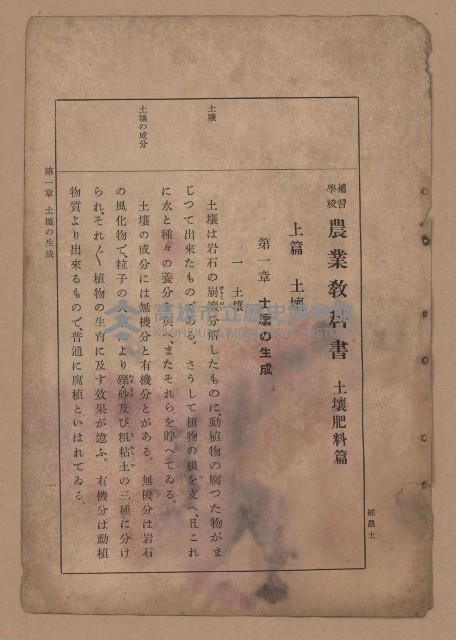 補習
學校
農業敎科書 土壤肥料篇
上篇 土壤
第一章 土壤の生成
一 土壤
土壤
土壤は岩石の崩壞分解したものに、動植物の腐つた物がま
じつて出來たものである。さうして植物の根を支へ、且これ
に水と種々の養分を與へ、またそれらを貯へてゐる。
土壤の成分
土壤の成分には無機分と有機分とがある。無機分は岩石
の風化物で、粒子の大小により礫・砂及び粗粘土の三種に分け
られ、それ〴〵植物の生育に及す效果が違ふ。有機分は動植
物質より出來るもので、普通に腐植といはれてゐる。
第一章 土壤の生成
一
補農土
高雄市立歷史博物館
KAOHSIUNG MUSEUM OF HISTORY